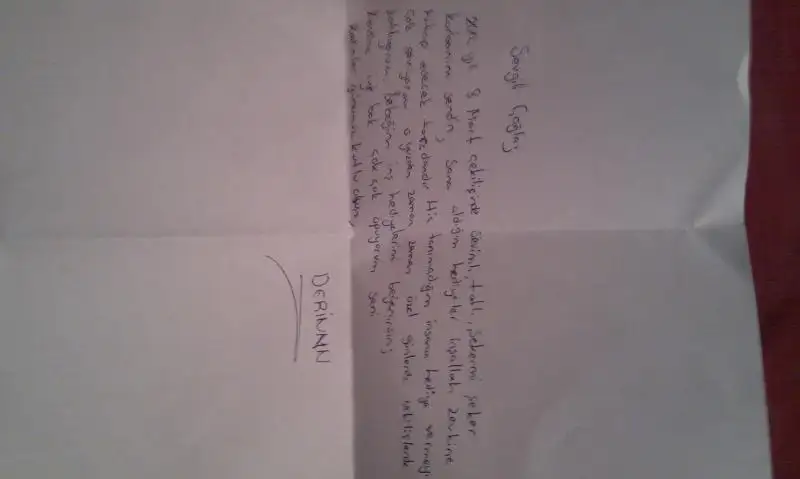 Sevgili Çağlar,
yıl 8 Mart çekilişinde sevimli, tatlı, şekermi şeker
kurbanım sendin; Sana aldığım hediyeler inşallah zevkine
hitap edecek tarzdandır Hiç tanımadığım insana hediye vermeyi
çok seviyorum o yüzden zaman zaman özel günlerde çekilişlerde
Bebeğim inş hediyelerini beğenirsin;
Kendine iyi bak çok çok öpüyorum seni
Kadınlar günümüz kutlu olsun,
DERİNNN